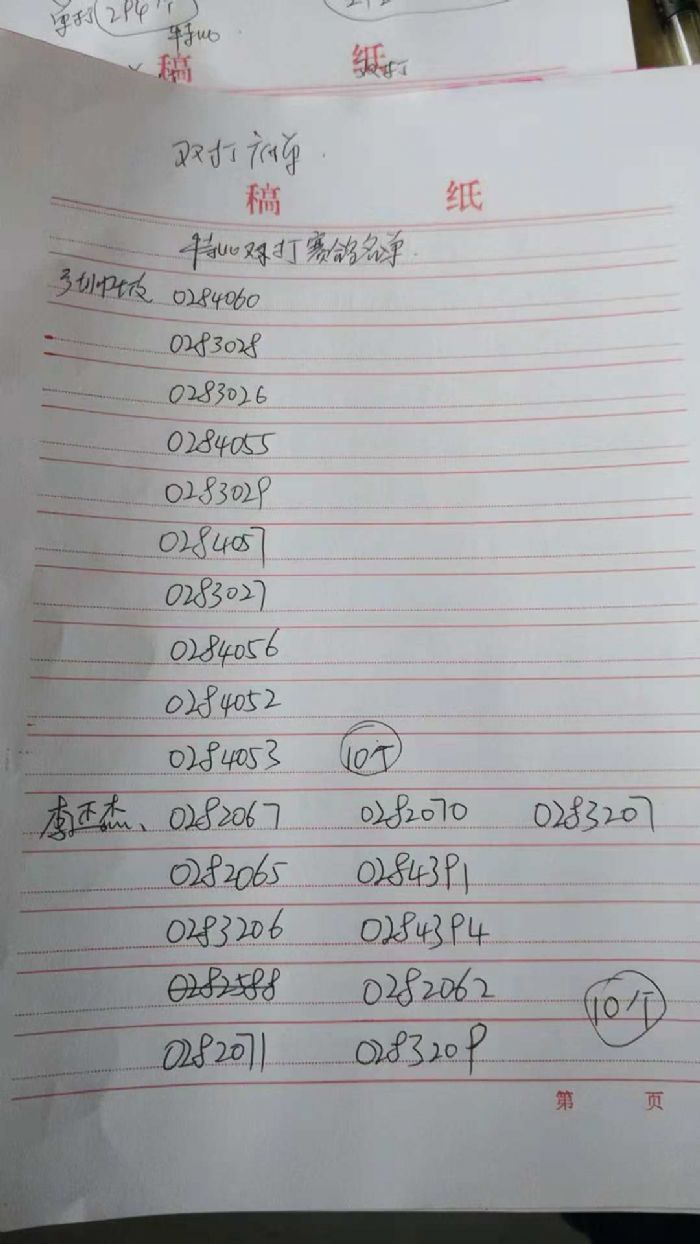 单打(294个)
特山
稿 纸
双打
双打 名单.
稿 纸
双打赛鸽名单.
0284060
0283028
0283026
0284055
0283029
0284057
0283027
0284056
0284052
0284053 10个
李正杰、0282067 0282070 0283207
0282065 0284391
0283206 0284394
0282588 0282062
10个
0282071 0283209
第 页